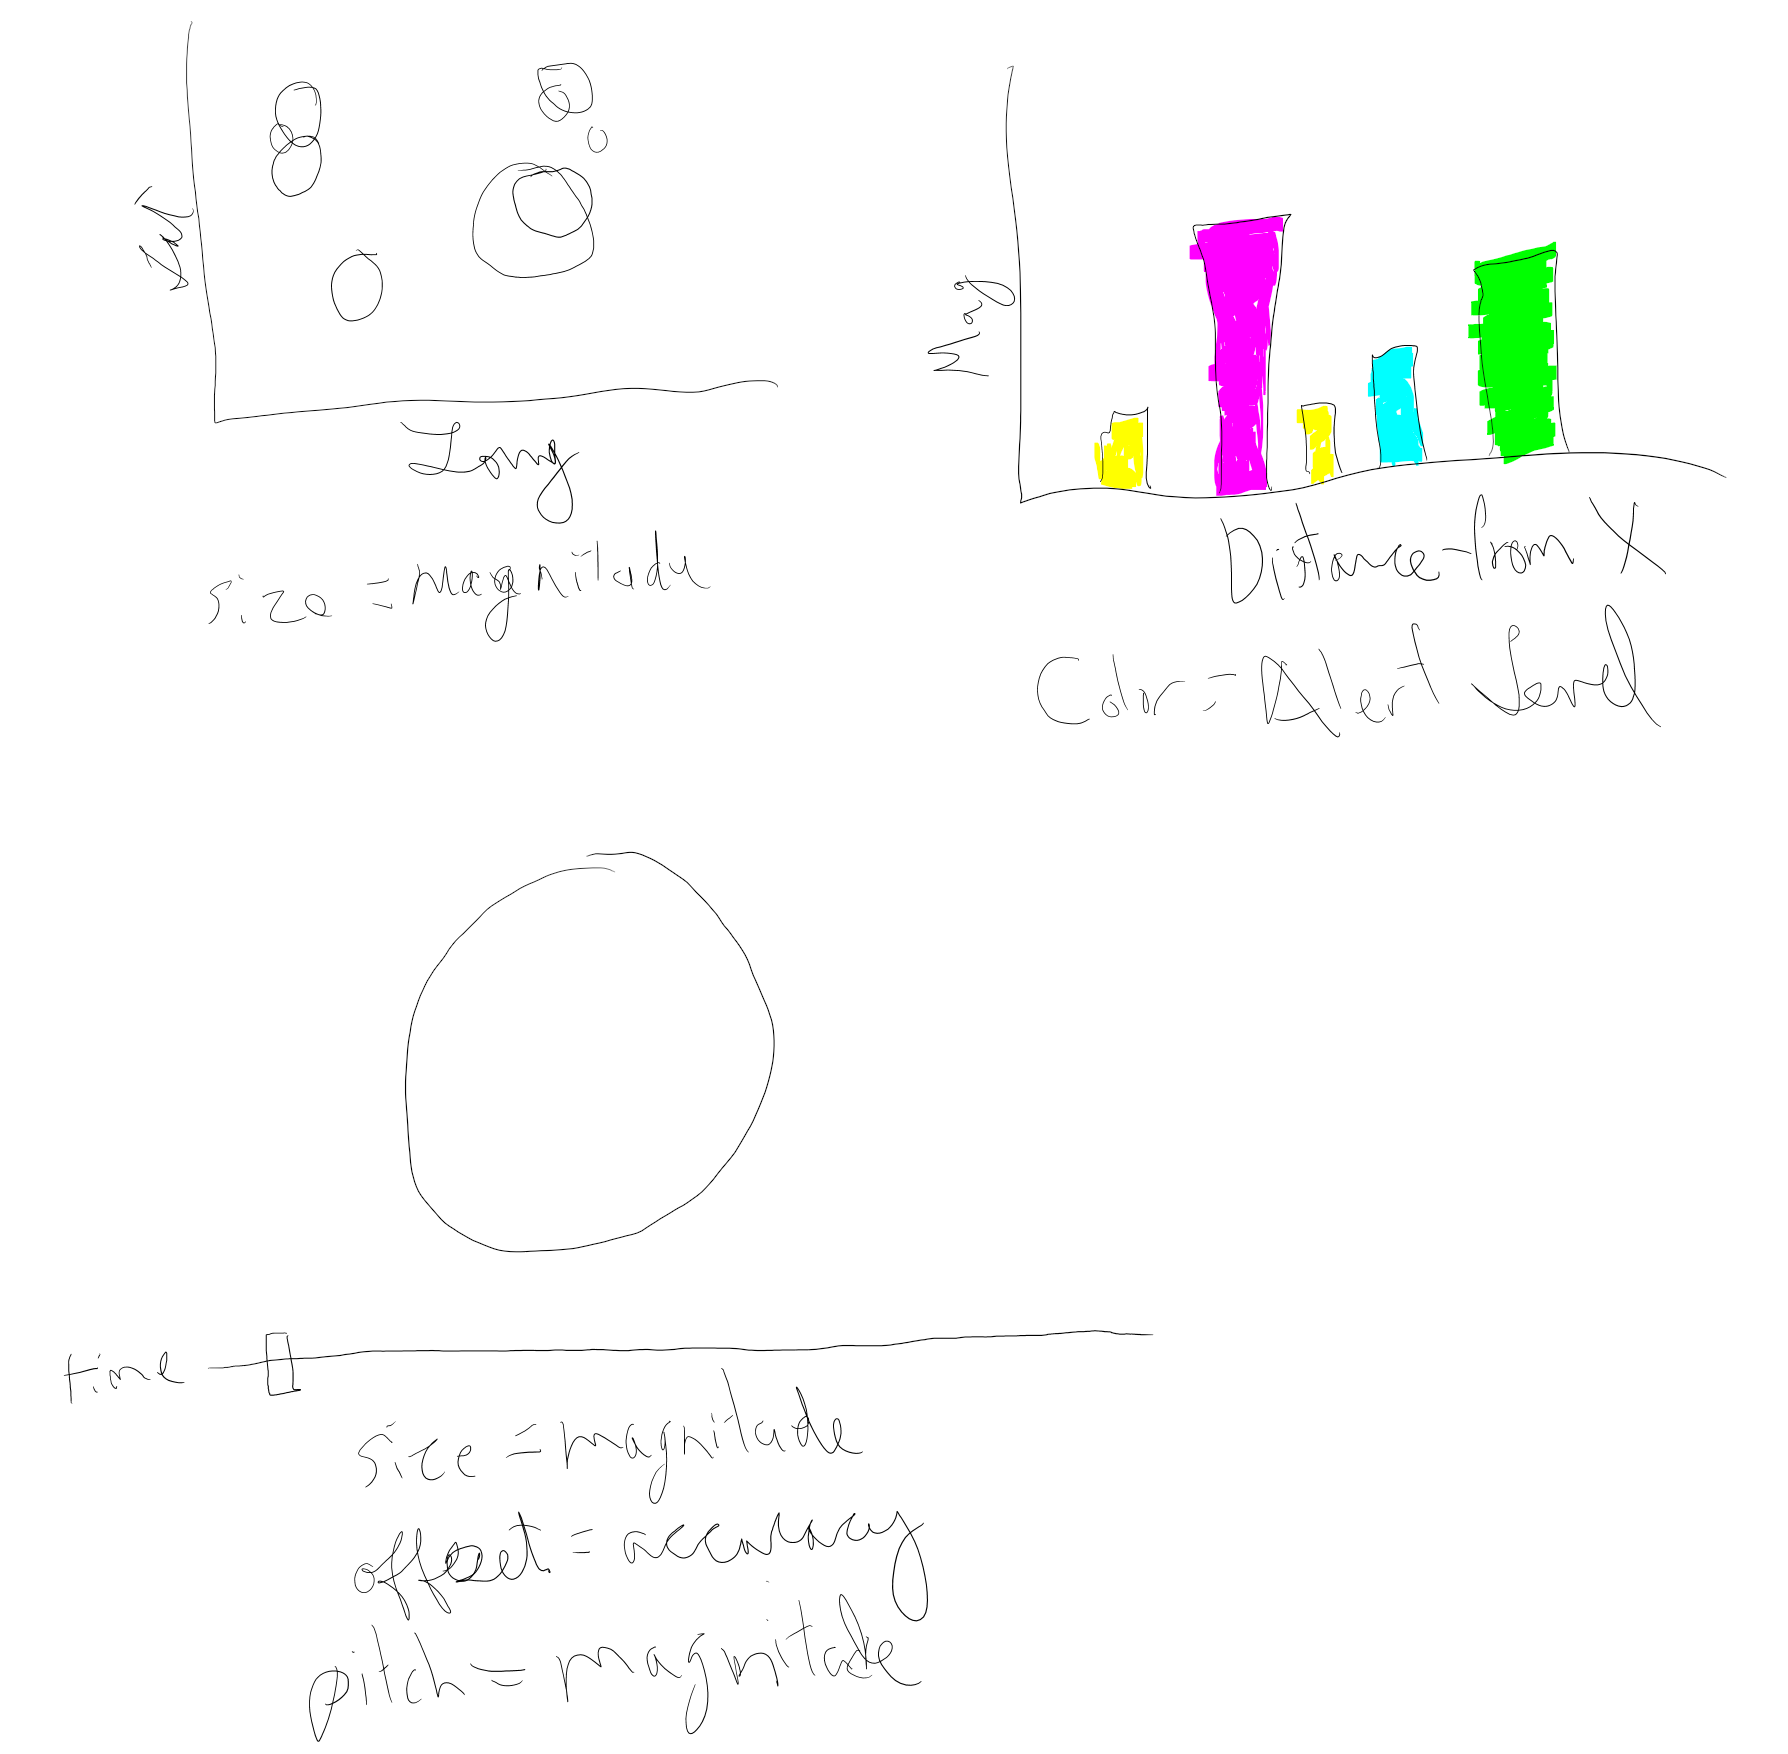 Lat
Long
size = magnitude
Mag
Distance from X
Color = Alert Level
time
size = magnitude
offset = accuracy
pitch = magnitude